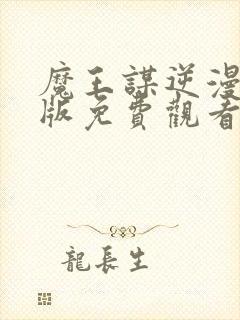 魔王謀逆漫
版免費觀看
龍長生